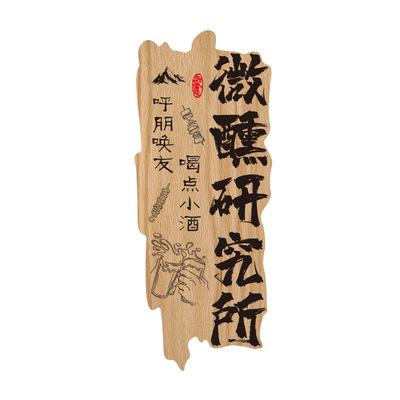 微醺研究所
喝点小酒
呼朋唤友